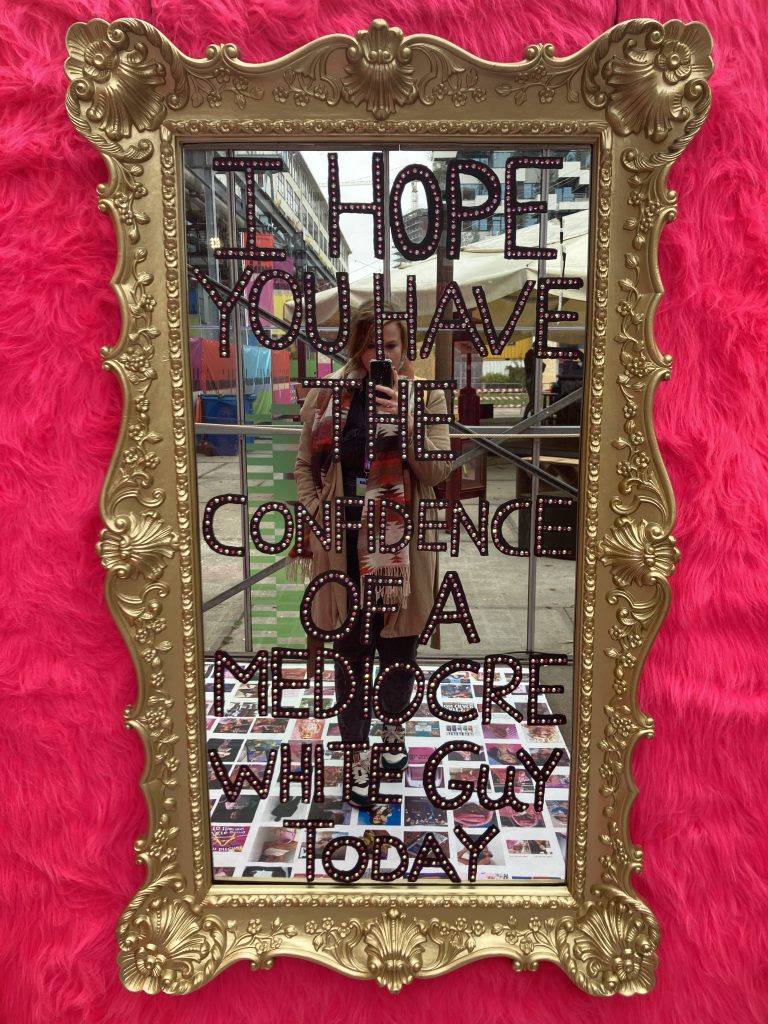 I HOPE
YOU HAVE
THE
CONFIDENCE
OF A
MEDIOCRE
WHITE GUY
TODAY